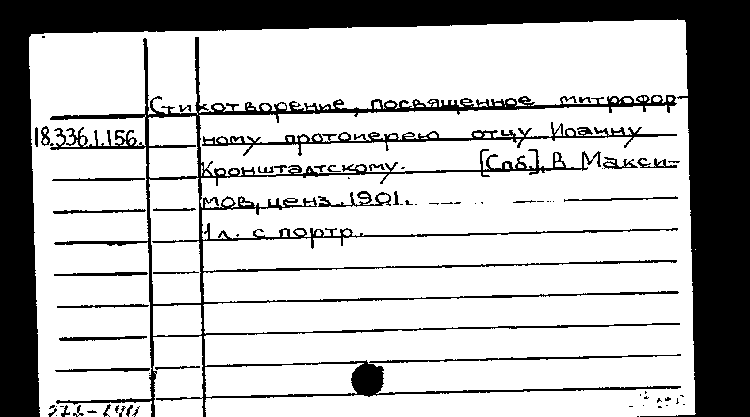 Стихотворение, посвященное митрофор-
18.336.1.156. ному протоиерею отцу Иоанну
Кронштадтскому. [Спб.], В Макси-
мов, ценз. 1901.
1 л. с портр.